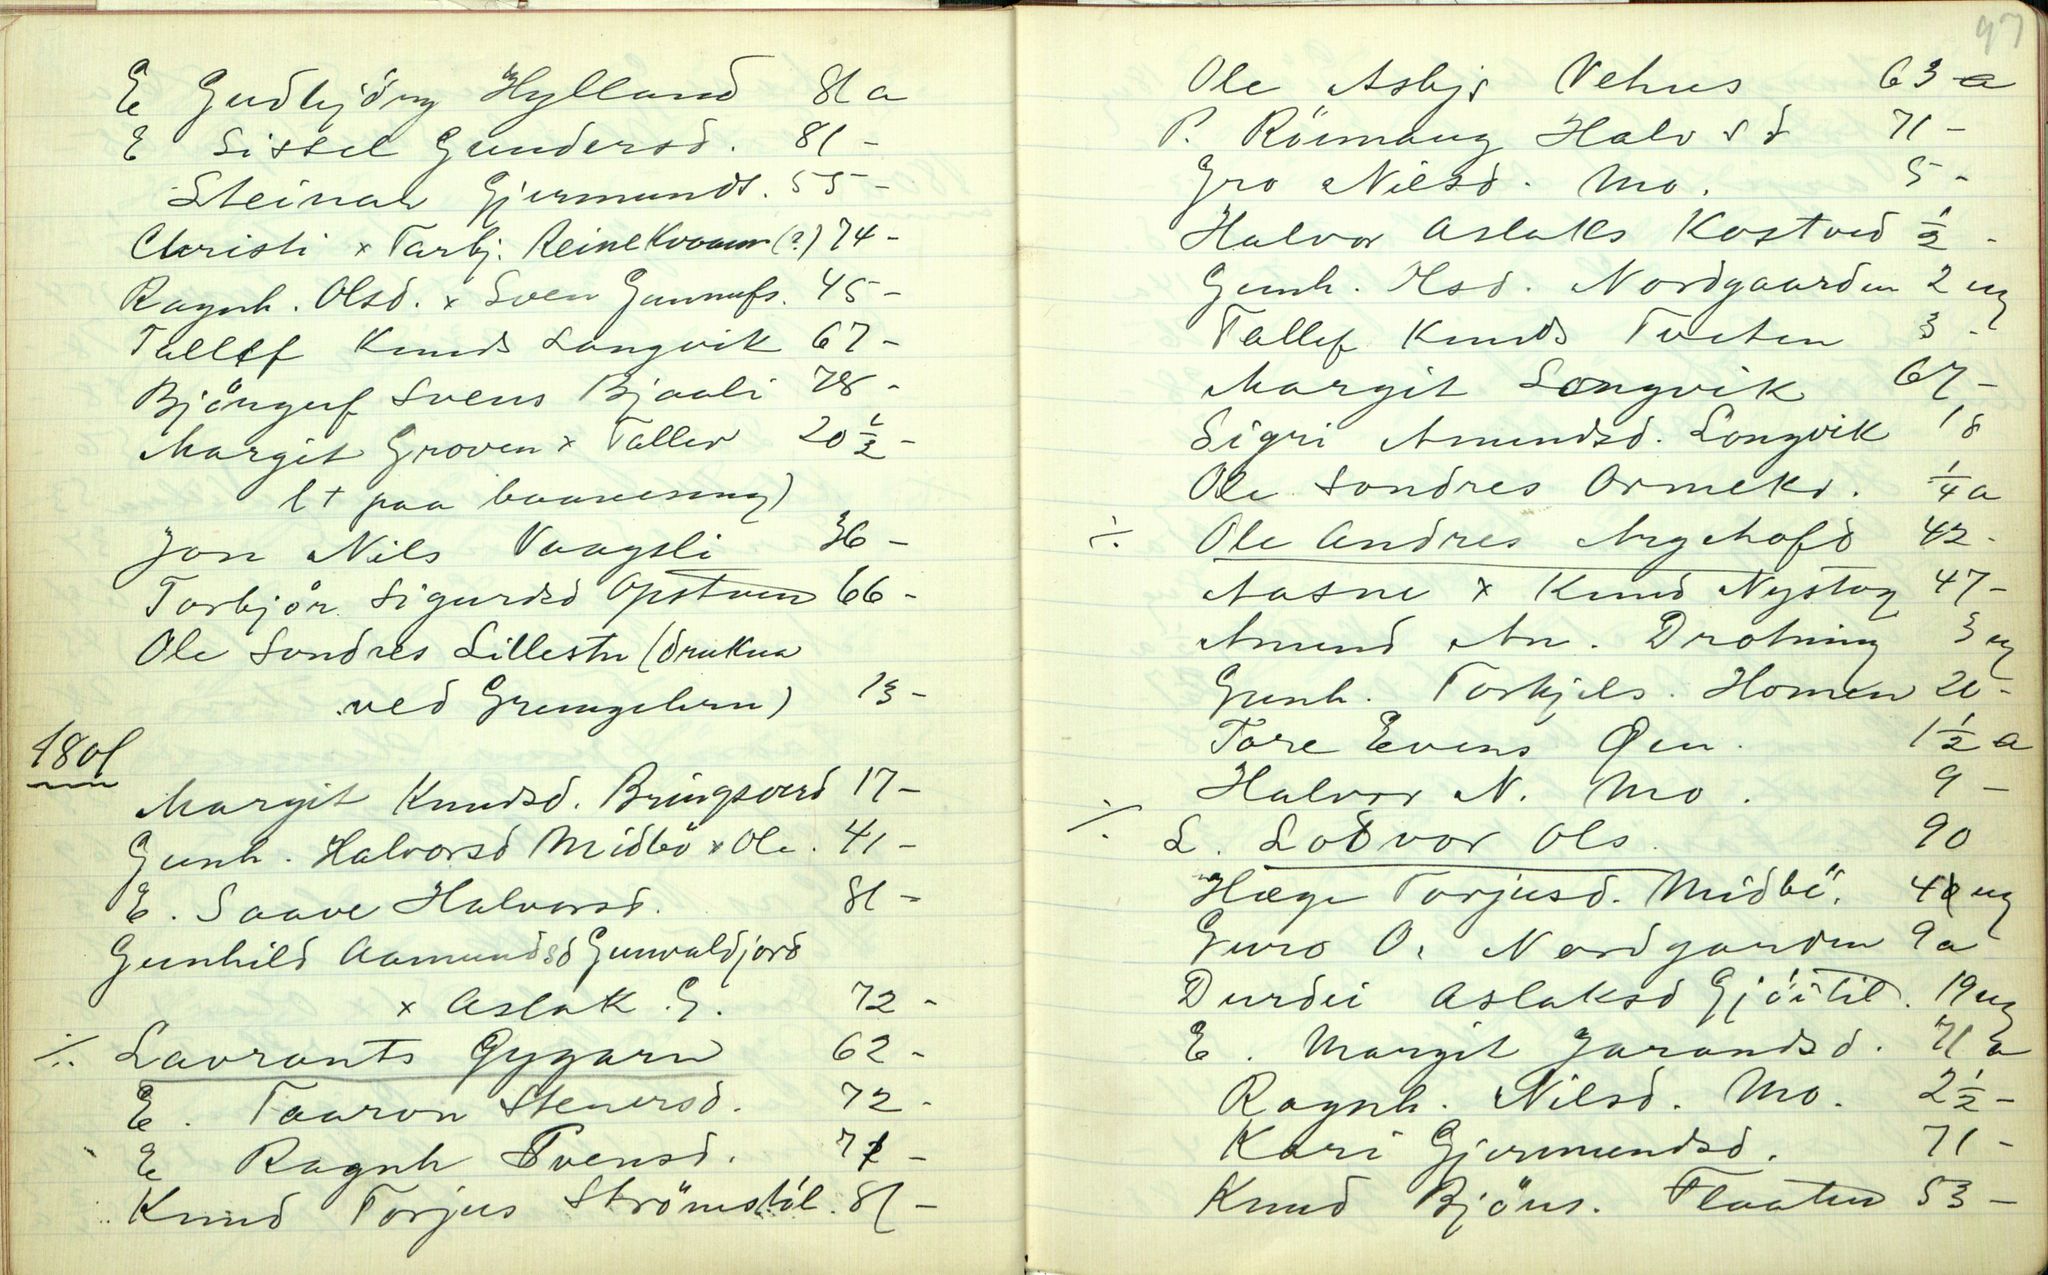 E Gudbjörg Hylland 81 a
E Sissel Gundersd. 81 -
Steinar Gjermunds. 55 -
Christi x Tarbj. Reinekvaam (?) 74 -
Ragnh. Olsd. x Sven Gunnufs. 45 -
Tallef Knuds Longvik 67 -
Björnguf Svens Bjaali 78 -
Margit Groven x Tallev 20 1/2 -
(+ paa baarseng)
Jon Nils Vaagsli 36 -
Torbjör Sigurdsd Opstuen 66 -
Ole Sondres Lillestu (drukna
ved Grungebru) 13 -
1801
Margit Knudsd. Bringsverd 17 -
Gunh. Halvorsd Midbö x Ole. 41 -
E. Saave Halvorsd. 81 -
Gunhild Aamundsd Gunvaldjord
x Aslak G. 72 -
·/. Lavrants Gygarn 62 -
E. Taaron Steinersd. 72 -
E Ragnh Svensd. 71 -
Knud Torjus Strömstöl. 81 -
97
Ole Asbjs Vehus 63 a
P. Röimaug Halvsd 71 -
Gro Nilsd. Mo. 5 -
Halvor Aslaks Kostved 1/2 -
Gunh. Olsd. Nordgaarden 2 ug
Tallef Knuds Tveten 3 -
Margit Longvik 67 -
Sigri Amundsd. Longvik 18
Ole Sondres Ormeks. 1/4 a
·/. Ole Andres Argehofd 42 -
Aasne x Knud Nystog 47 -
Amund An. Drotning 3 ug
Gunh. Torkjels. Homen 20 -
Tore Evens Öen. 1 1/2 a
Halvor N. Mo. 9 -
·/. L. Lodvor Ols. 90
Hæge Torjusd. Midbö. 40 ug
Guro O. Nordgarden 9 a
Durdei Aslaksd Gjöitil. 19 ug
E. Margit Jarandsd. 71 a
Ragnh. Nilsd. Mo. 2 1/2 -
Kari Gjermundsd. 71 -
Knud Bjöns. Flaaten 53 -